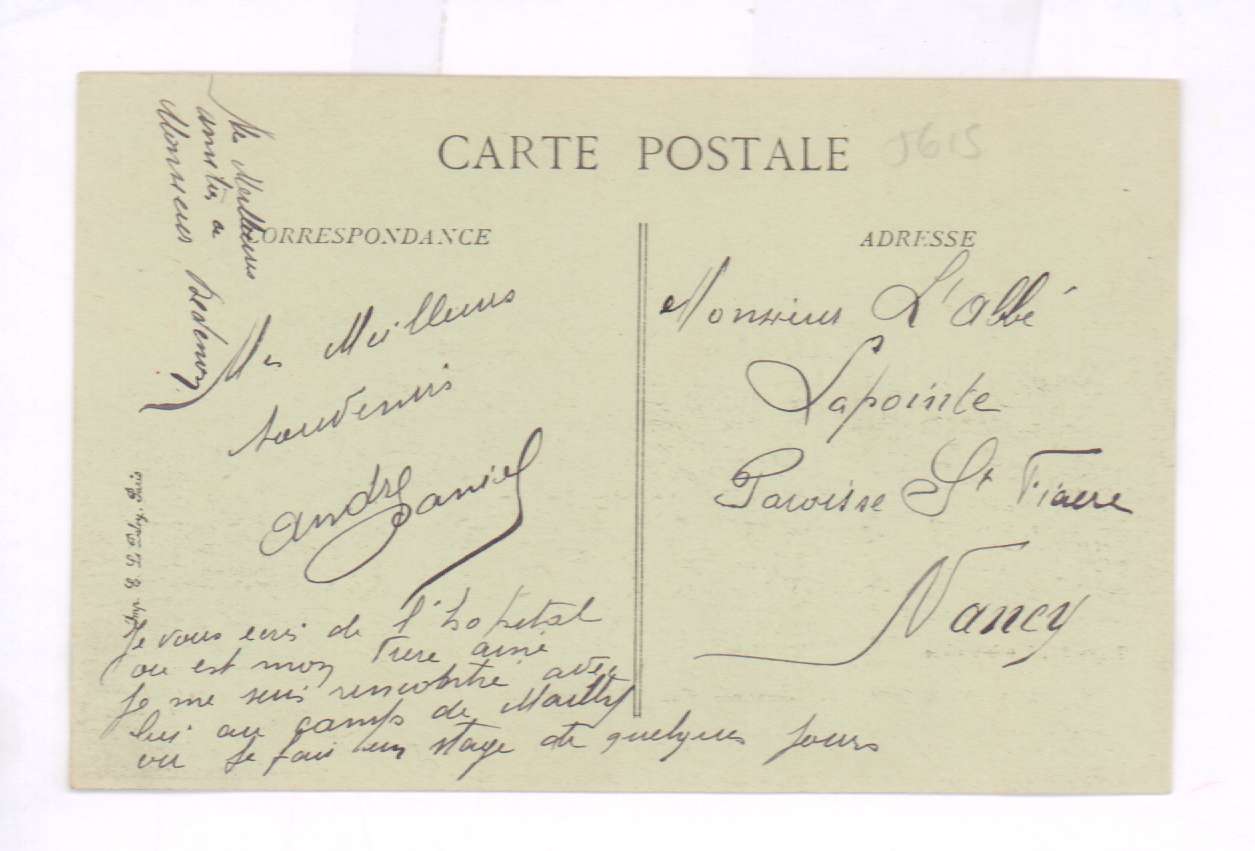 CARTE POSTALE
5615
CORRESPONDANCE
ADRESSE
Mes Meilleures
amitiés a
Monsieur
Mes Meilleurs
souvenirs
André Daniel
Je vous ecris de l'hopital
ou est mon frere ainé
Je me suis rencontré avec
lui au camps de Mailly
ou Je fais un stage de quelques jours
Monsieur L'Abbé
Lapointe
Paroisse St Fiacre
Nancy
Imp. E. Le Deley, Paris